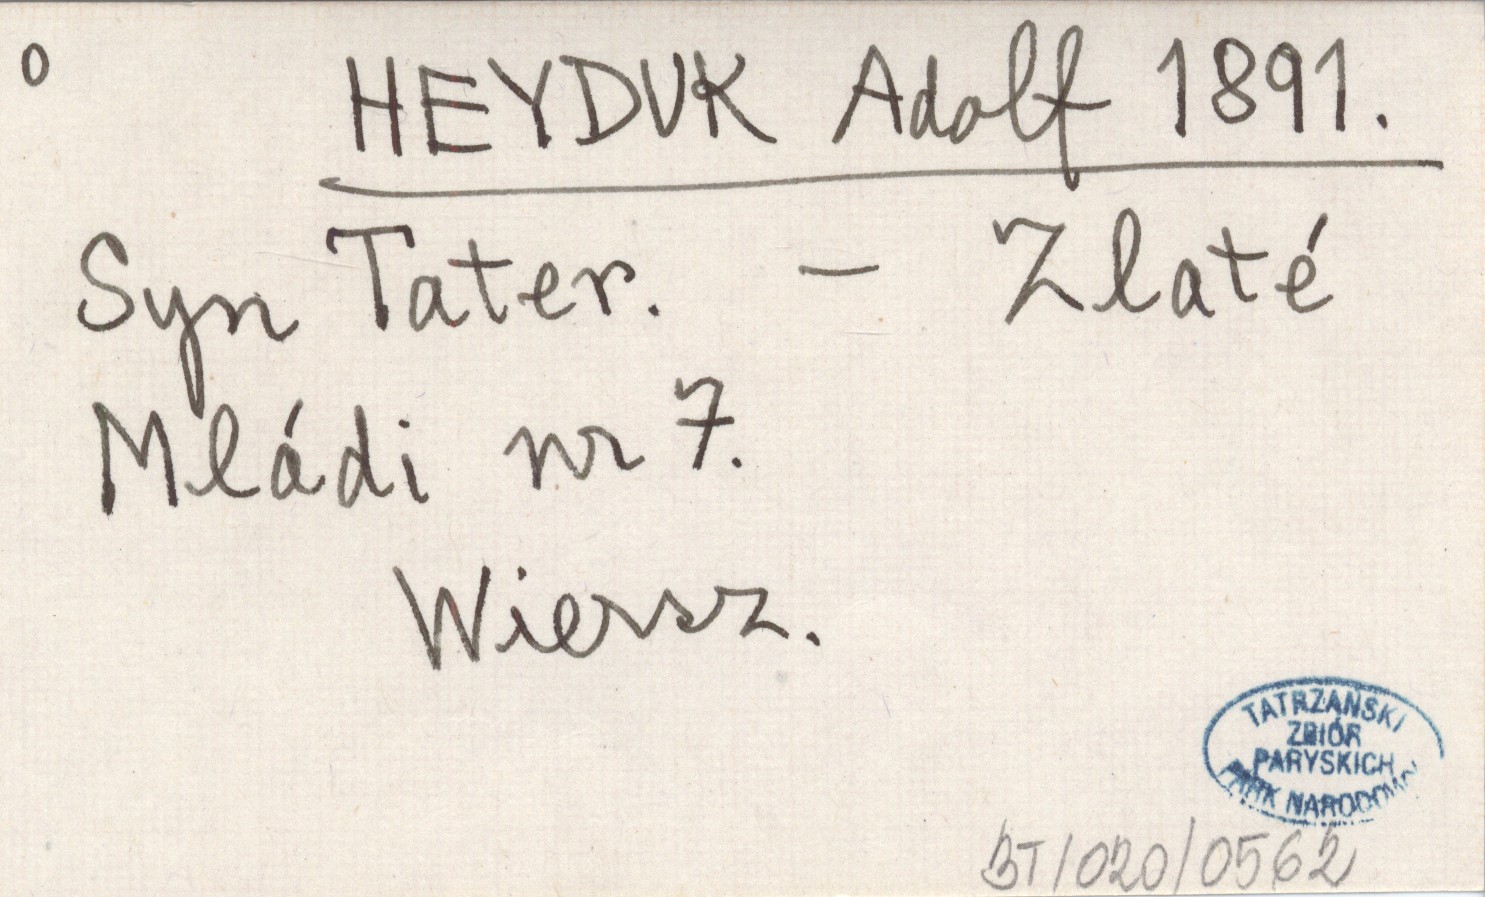 o
HEYDUK Adolf 1891.
Syn Tater. — Zlaté
Mládi nr 7.
Wiersz.
TATRZAŃSKI
ZBIÓR
PARYSKICH
PARK NARODOWY
BT/020/0562